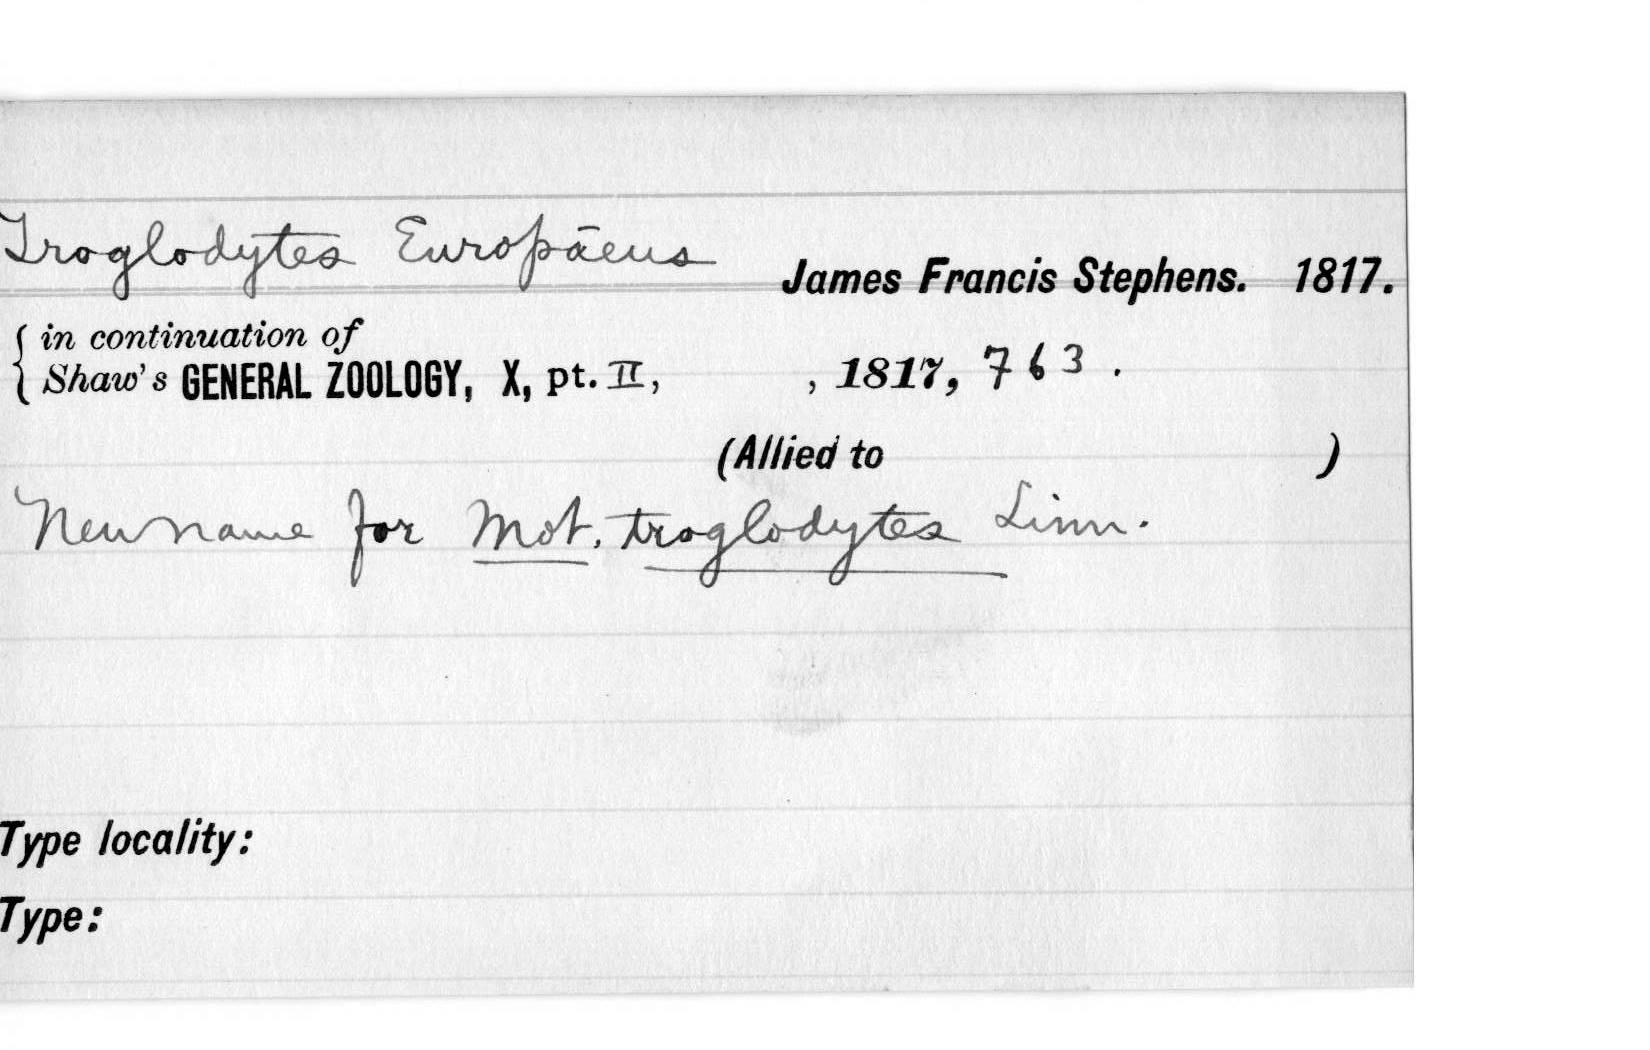 Troglodytes Europāeus
James Francis Stephens. 1817.
{ in continuation of
Shaw's GENERAL ZOOLOGY, X, pt. II, , 1817, 763 .
(Allied to )
New name for Mot. troglodytes Linn.
Type locality:
Type: